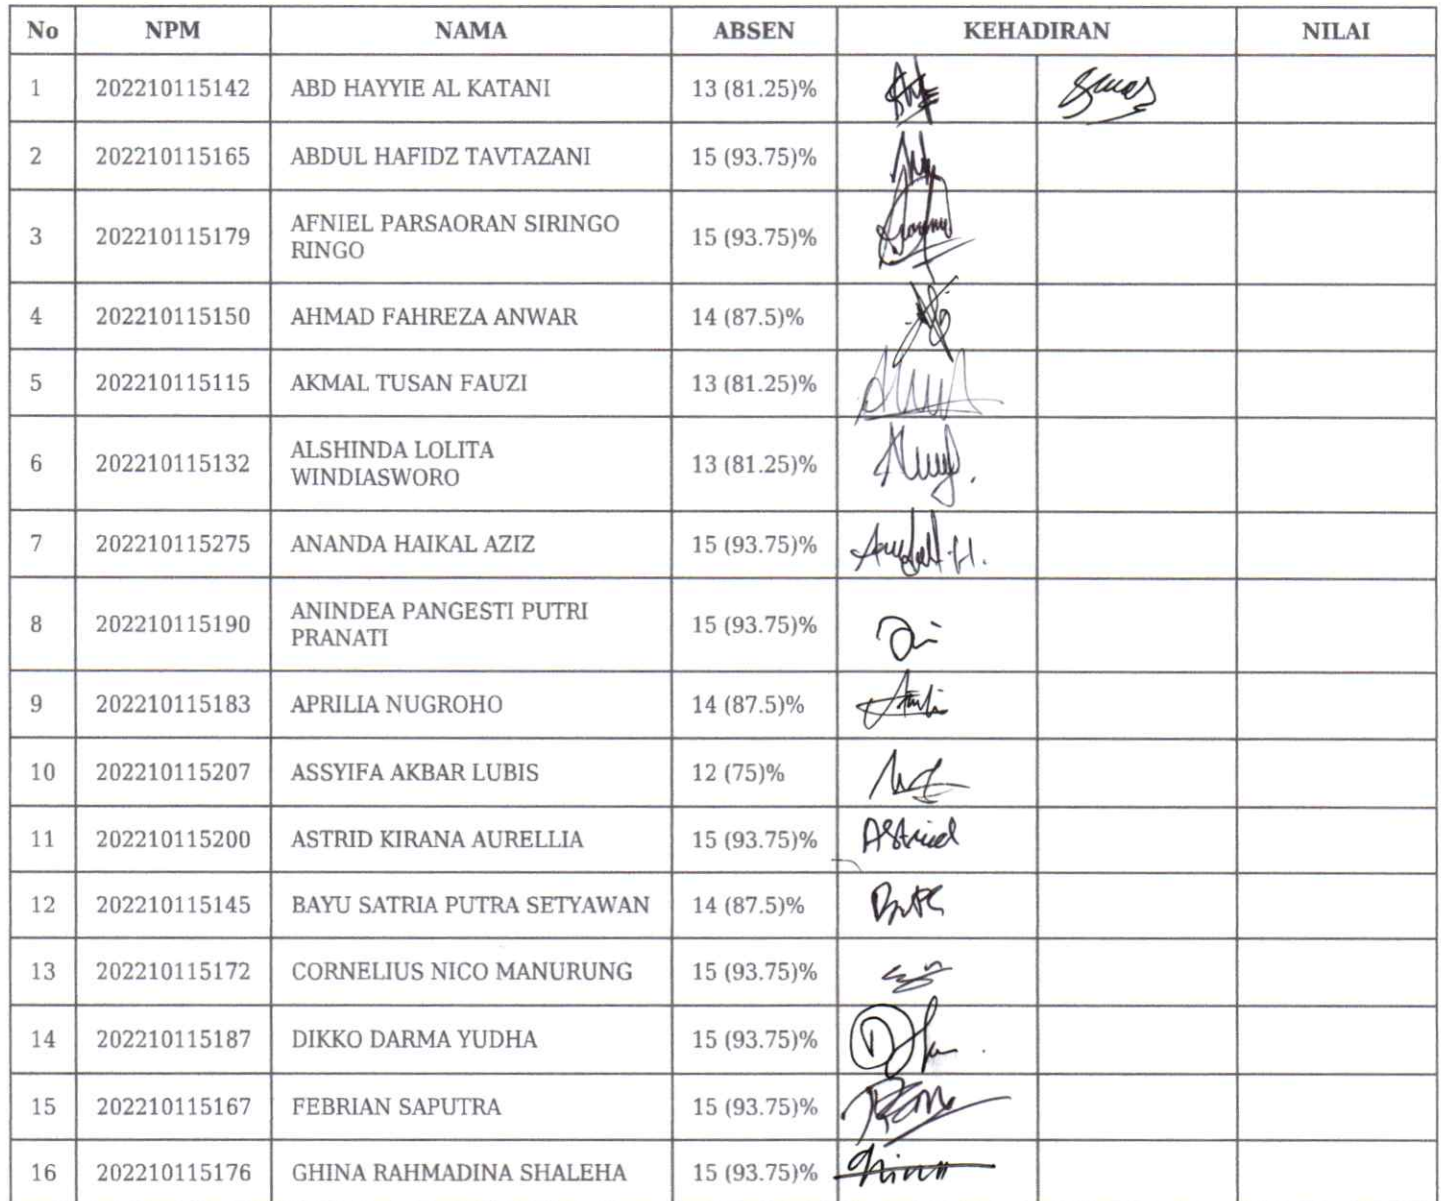 No NPM NAMA ABSEN KEHADIRAN NILAI
1 202210115142 ABD HAYYIE AL KATANI 13 (81.25)%
2 202210115165 ABDUL HAFIDZ TAVTAZANI 15 (93.75)%
3 202210115179 AFNIEL PARSAORAN SIRINGO RINGO 15 (93.75)%
4 202210115150 AHMAD FAHREZA ANWAR 14 (87.5)%
5 202210115115 AKMAL TUSAN FAUZI 13 (81.25)%
6 202210115132 ALSHINDA LOLITA WINDIASWORO 13 (81.25)%
7 202210115275 ANANDA HAIKAL AZIZ 15 (93.75)%
8 202210115190 ANINDEA PANGESTI PUTRI PRANATI 15 (93.75)%
9 202210115183 APRILIA NUGROHO 14 (87.5)%
10 202210115207 ASSYIFA AKBAR LUBIS 12 (75)%
11 202210115200 ASTRID KIRANA AURELLIA 15 (93.75)% Astried
12 202210115145 BAYU SATRIA PUTRA SETYAWAN 14 (87.5)%
13 202210115172 CORNELIUS NICO MANURUNG 15 (93.75)%
14 202210115187 DIKKO DARMA YUDHA 15 (93.75)%
15 202210115167 FEBRIAN SAPUTRA 15 (93.75)%
16 202210115176 GHINA RAHMADINA SHALEHA 15 (93.75)%